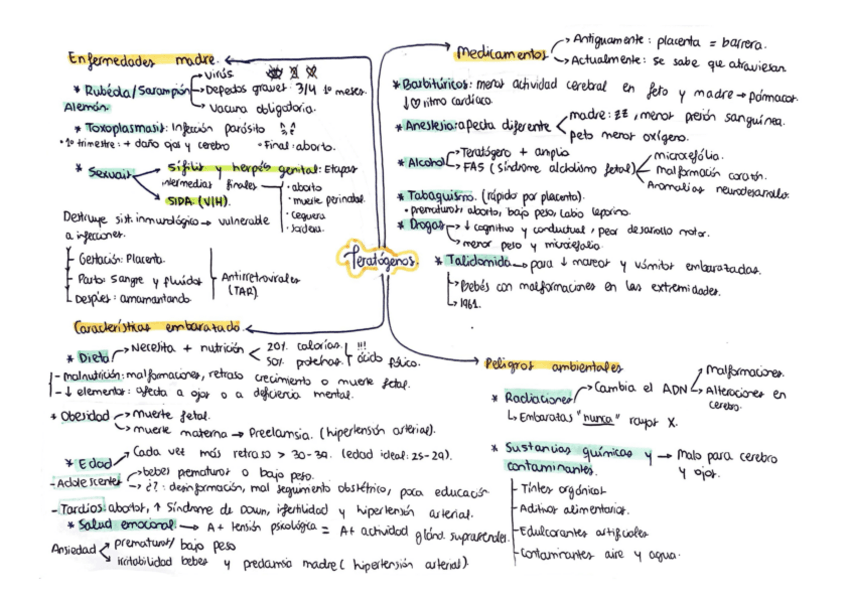 Teratógenos.
Enfermedades madre.
* Rubéola/Sarampión
Alemán.
→ Virus
→ Depedos graves 3/4 1º meses.
→ Vacuna obligatoria.
* Toxoplasmosis: Infección parásito
· 1º trimestre: + daño ojos y cerebro · Final: aborto.
* Sexuais
Sífilis y herpés genital: Etapas
intermedias finales
· aborto
· muerte perinatal.
· ceguera
· sordera.
SIDA (VIH).
Destruye sist. inmunológico → vulnerable
a infecciones.
Gestación: Placenta.
Parto: Sangre y fluidos
Después: amamantando
Antirretrovirales
(TAR)
Medicamentos
→ Antiguamente: placenta = barrera.
→ Actualmente: se sabe que atraviesan
* Barbitúricos: menor actividad cerebral en feto y madre → fármacos
↓♡ ritmo cardíaco
* Anestesia: afecta diferente
madre: zz, menor presión sanguínea.
feto menor oxígeno.
* Alcohol
→ Teratógero + amplio
→ FAS (síndrome alcholismo fetal)
microcefália.
malformación corazón.
Anomalías neurodesarrollo.
* Tabaquismo. (rápido por placenta).
· prematuros aborto, bajo peso, labio leporino.
* Drogas → ↓ cognitivo y conductual, peor desarrollo motor.
→ menor peso y microcefalia.
* Talidomida → para ↓ mareos y vómitos embarazadas.
→ Bebés con malformaciones en las extremidades.
→ 1961.
Características embarazada.
* Dieta → Necesita + nutrición
20% calorías
50% proteínas.
!!!
ácido fólico.
- malnutrición: malformaciones, retraso crecimiento o muerte fetal.
- ↓ elementos: afecta a ojos o a deficiencia mental.
* Obesidad → muerte fetal.
→ muerte materna → Preelamsia. (hipertensión arterial).
* Edad → Cada vez más retraso > 30-39. (edad ideal: 25-29).
- Adolescentes → bebes prematuros o bajo peso.
→ ¿?: desinformación, mal seguimiento obstétrico, poca educación
- Tardíos: abortos, ↑ Síndrome de Down, infertilidad y hipertensión arterial.
* Salud emocional → A + tensión psicológica = A + actividad glánd. suprarrenales.
Ansiedad
prematuros/ bajo peso
irritabilidad bebes y predamsia madre (hipertensión arterial)
Peligros ambientales
* Radiaciones → Cambia el ADN
Malformaciones.
→ Alteraciones en
cerebro.
↳ Embaratas "nunca" rayos X.
* Sustancias químicas y
contaminantes.
→ Malo para cerebro
y ojos.
- Tintes orgánicos
- Aditivos alimentarios.
- Edulcorantes artificiales
- Contaminantes aire y agua.